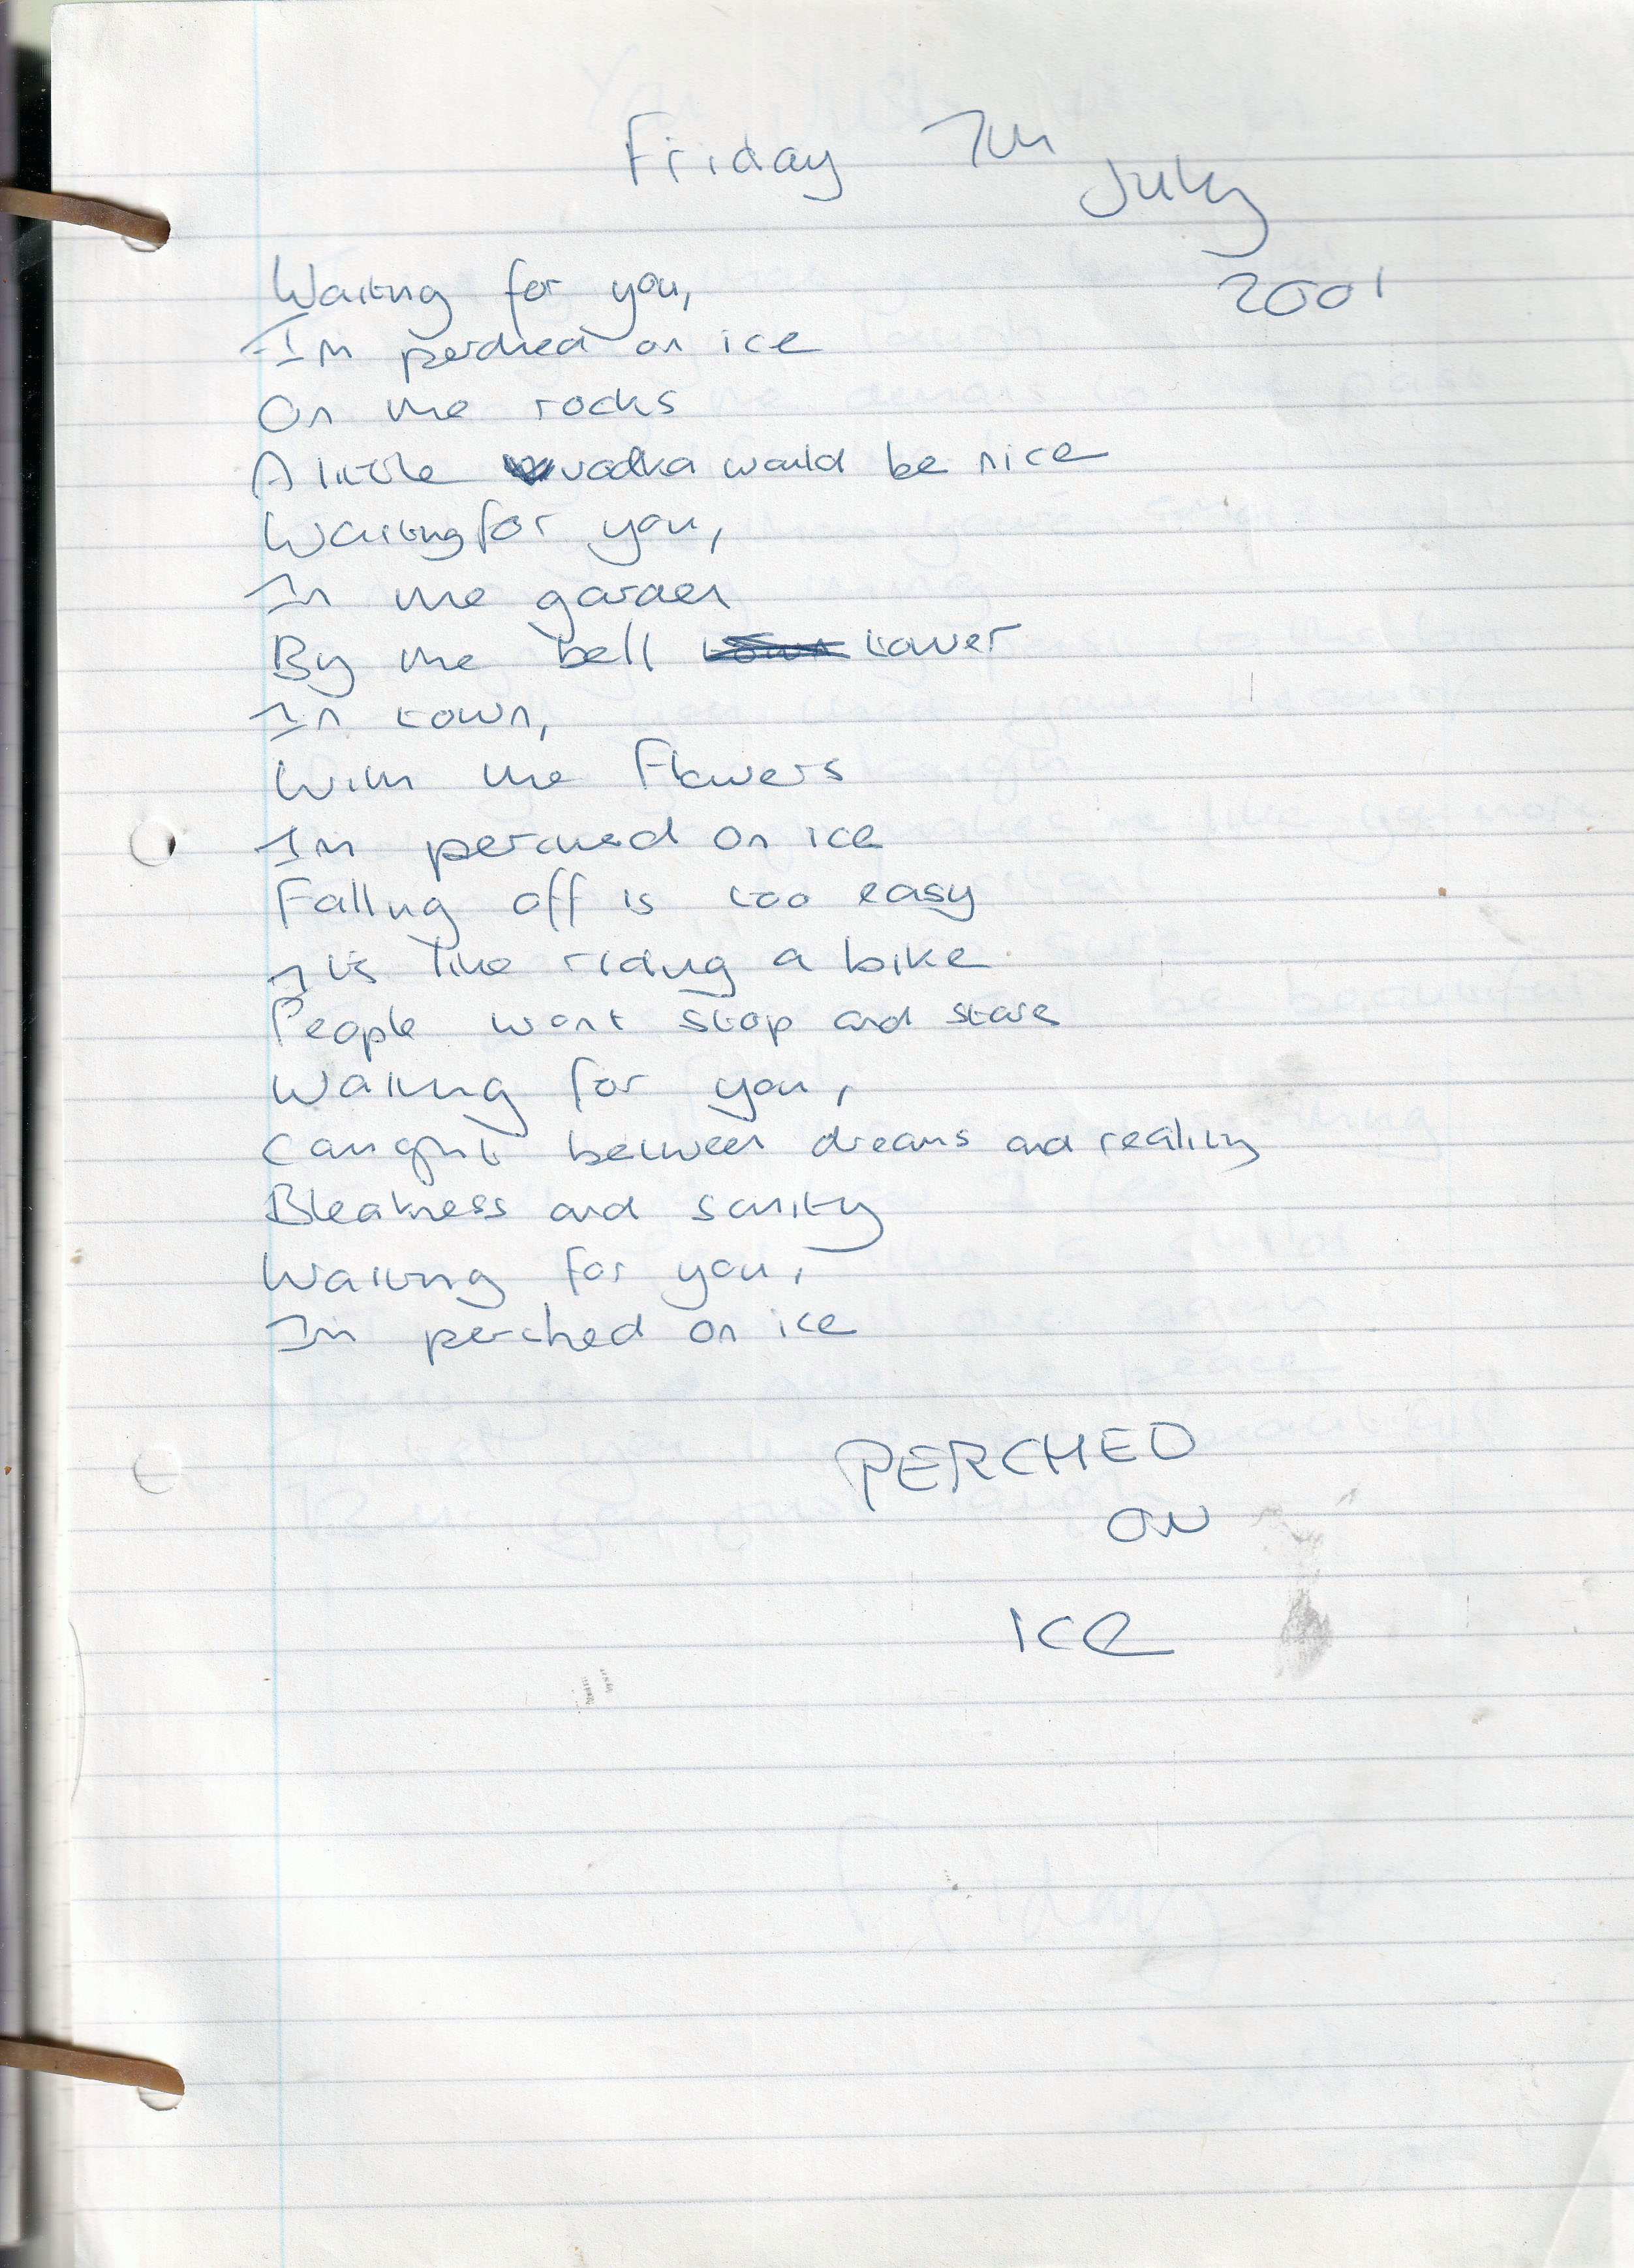 Friday 7th
July
2001
Waiting for you,
Im perched on ice
On the rocks
A little vodka would be nice
Waiting for you,
In the garden
By the bell town tower
In town,
With the flowers
Im perched on ice
Falling off is too easy
Its like riding a bike
People wont stop and stare
Waiting for you,
Caught between dreams and reality
Bleakness and sanity
Waiting for you,
Im perched on ice
PERCHED
ON
ICE